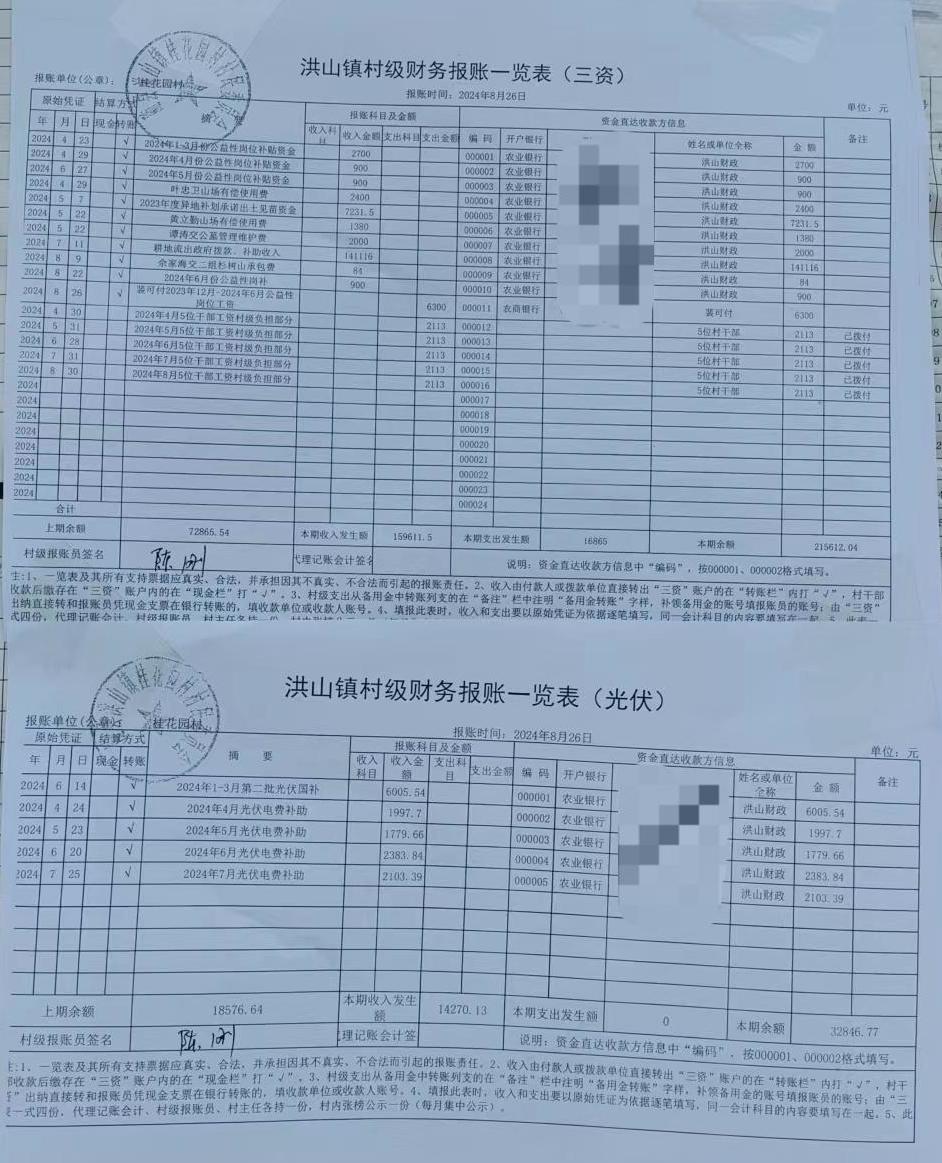 洪山镇村级财务报账一览表（三资）
报账单位(公章)： 桂花园村 报账时间：2024年8月26日 单位：元
原始凭证 结算方式 摘 要 报账科目及金额 资金直达收款方信息 备注
年 月 日 现金 转账 收入科目 收入金额 支出科目 支出金额 编 码 开户银行 姓名或单位全称 金 额
2024 4 23 √ 2024年1-3月份公益性岗位补贴资金 2700 000001 农业银行 洪山财政 2700
2024 4 29 √ 2024年4月份公益性岗位补贴资金 900 000002 农业银行 洪山财政 900
2024 6 27 √ 2024年5月份公益性岗位补贴资金 900 000003 农业银行 洪山财政 900
2024 4 29 √ 叶忠卫山场有偿使用费 2400 000004 农业银行 洪山财政 2400
2024 5 7 √ 2023年度异地补划承诺出土见苗资金 7231.5 000005 农业银行 洪山财政 7231.5
2024 5 22 √ 黄立勤山场有偿使用费 1380 000006 农业银行 洪山财政 1380
2024 5 22 √ 谭涛交公墓管理维护费 2000 000007 农业银行 洪山财政 2000
2024 7 11 √ 耕地流出政府拨款、补助收入 141116 000008 农业银行 洪山财政 141116
2024 8 9 √ 余家海交二组杉树山承包费 84 000009 农业银行 洪山财政 84
2024 8 22 √ 2024年6月份公益性岗补 900 000010 农业银行 洪山财政 900
2024 8 26 √ 装可付2023年12月-2024年6月公益性岗位工资 6300 000011 农商银行 装可付 6300
2024 4 30 2024年4月5位干部工资村级负担部分 2113 000012 5位村干部 2113 已拨付
2024 5 31 2024年5月5位干部工资村级负担部分 2113 000013 5位村干部 2113 已拨付
2024 6 28 2024年6月5位干部工资村级负担部分 2113 000014 5位村干部 2113 已拨付
2024 7 31 2024年7月5位干部工资村级负担部分 2113 000015 5位村干部 2113 已拨付
2024 8 30 2024年8月5位干部工资村级负担部分 2113 000016 5位村干部 2113 已拨付
2024 000017
2024 000018
2024 000019
2024 000020
2024 000021
2024 000022
2024 000023
2024 000024
合计
上期余额 72865.54 本期收入发生额 159611.5 本期支出发生额 16865 本期余额 215612.04
村级报账员签名 陈 代理记账会计签名 说明：资金直达收款方信息中“编码”，按000001、000002格式填写。
主:1、一览表及其所有支持票据应真实、合法，并承担因其不真实、不合法而引起的报账责任。2、收入由付款人或拨款单位直接转出“三资”账户的在“转账栏”内打“√”，村干部
收款后缴存在“三资”账户内的在“现金栏”打“√”。3、村级支出从备用金中转账列支的在“备注”栏中注明“备用金转账”字样，补领备用金的账号填报账员的账号；由“三资”
出纳直接转和报账员凭现金支票在银行转账的，填收款单位或收款人账号。4、填报此表时，收入和支出要以原始凭证为依据逐笔填写，同一会计科目的内容要填写在一起。5、此表一
式四份，代理记账会计、村级报账员、村主任各持一份，
洪山镇村级财务报账一览表（光伏）
报账单位(公章): 桂花园村 报账时间：2024年8月26日 单位：元
原始凭证 结算方式 摘 要 报账科目及金额 资金直达收款方信息 备注
年 月 日 现金 转账 收入科目 收入金额 支出科目 支出金额 编 码 开户银行 姓名或单位全称 金 额
2024 6 14 √ 2024年1-3月第二批光伏国补 6005.54 000001 农业银行 洪山财政 6005.54
2024 4 24 √ 2024年4月光伏电费补助 1997.7 000002 农业银行 洪山财政 1997.7
2024 5 23 √ 2024年5月光伏电费补助 1779.66 000003 农业银行 洪山财政 1779.66
2024 6 20 √ 2024年6月光伏电费补助 2383.84 000004 农业银行 洪山财政 2383.84
2024 7 25 √ 2024年7月光伏电费补助 2103.39 000005 农业银行 洪山财政 2103.39
上期余额 18576.64 本期收入发生额 14270.13 本期支出发生额 0 本期余额 32846.77
村级报账员签名 陈 代理记账会计签 说明：资金直达收款方信息中“编码”，按000001、000002格式填写。
主:1、一览表及其所有支持票据应真实、合法，并承担因其不真实、不合法而引起的报账责任。2、收入由付款人或拨款单位直接转出“三资”账户的在“转账栏”内打“√”，村干
部收款后缴存在“三资”账户内的在“现金栏”打“√”。3、村级支出从备用金中转账列支的在“备注”栏中注明“备用金转账”字样，补领备用金的账号填报账员的账号；由“三
资”出纳直接转和报账员凭现金支票在银行转账的，填收款单位或收款人账号。4、填报此表时，收入和支出要以原始凭证为依据逐笔填写，同一会计科目的内容要填写在一起。5、此
表一式四份，代理记账会计、村级报账员、村主任各持一份，村内张榜公示一份（每月集中公示）。